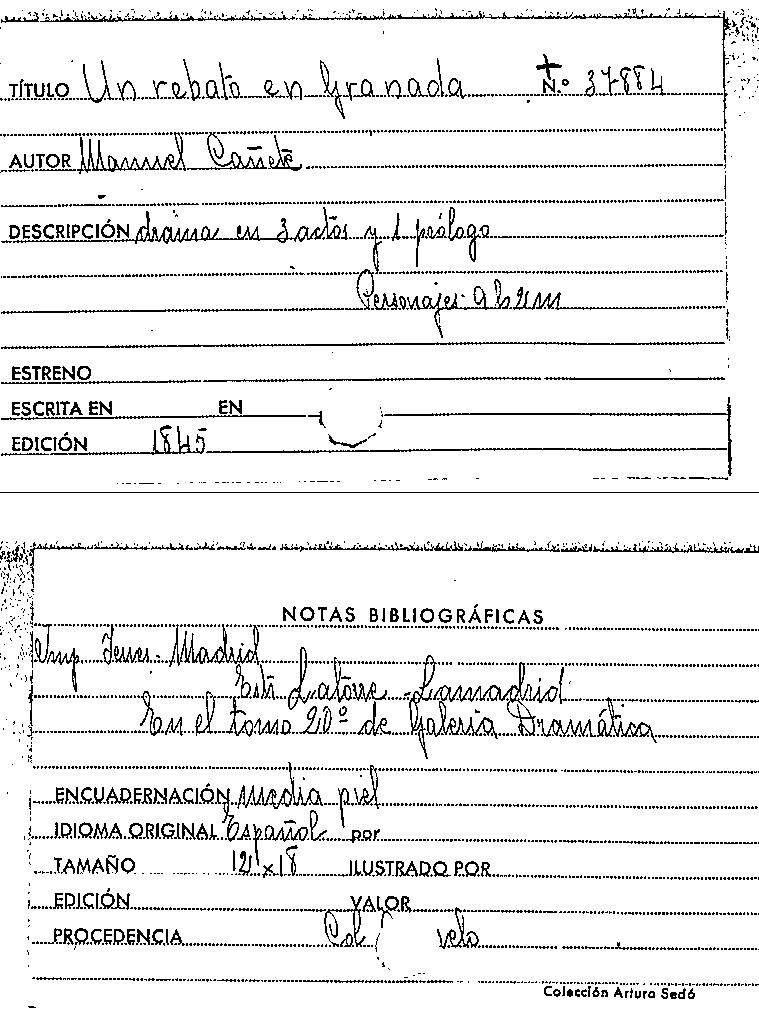 TÍTULO Un rebato en Granada N.º 37884
AUTOR Manuel Cañete
DESCRIPCIÓN drama en 3 actos y 1 prólogo
Personajes: 9 h 2 m
ESTRENO
ESCRITA EN EN
EDICIÓN 1845
NOTAS BIBLIOGRÁFICAS
Imp. Madrid
Latorre - Lamadrid
En el tomo 20º de Galería Dramática
ENCUADERNACIÓN media piel
IDIOMA ORIGINAL Español por
TAMAÑO 12 x 18 ILUSTRADO POR
EDICIÓN VALOR
PROCEDENCIA Col
Colección Arturo Sedó